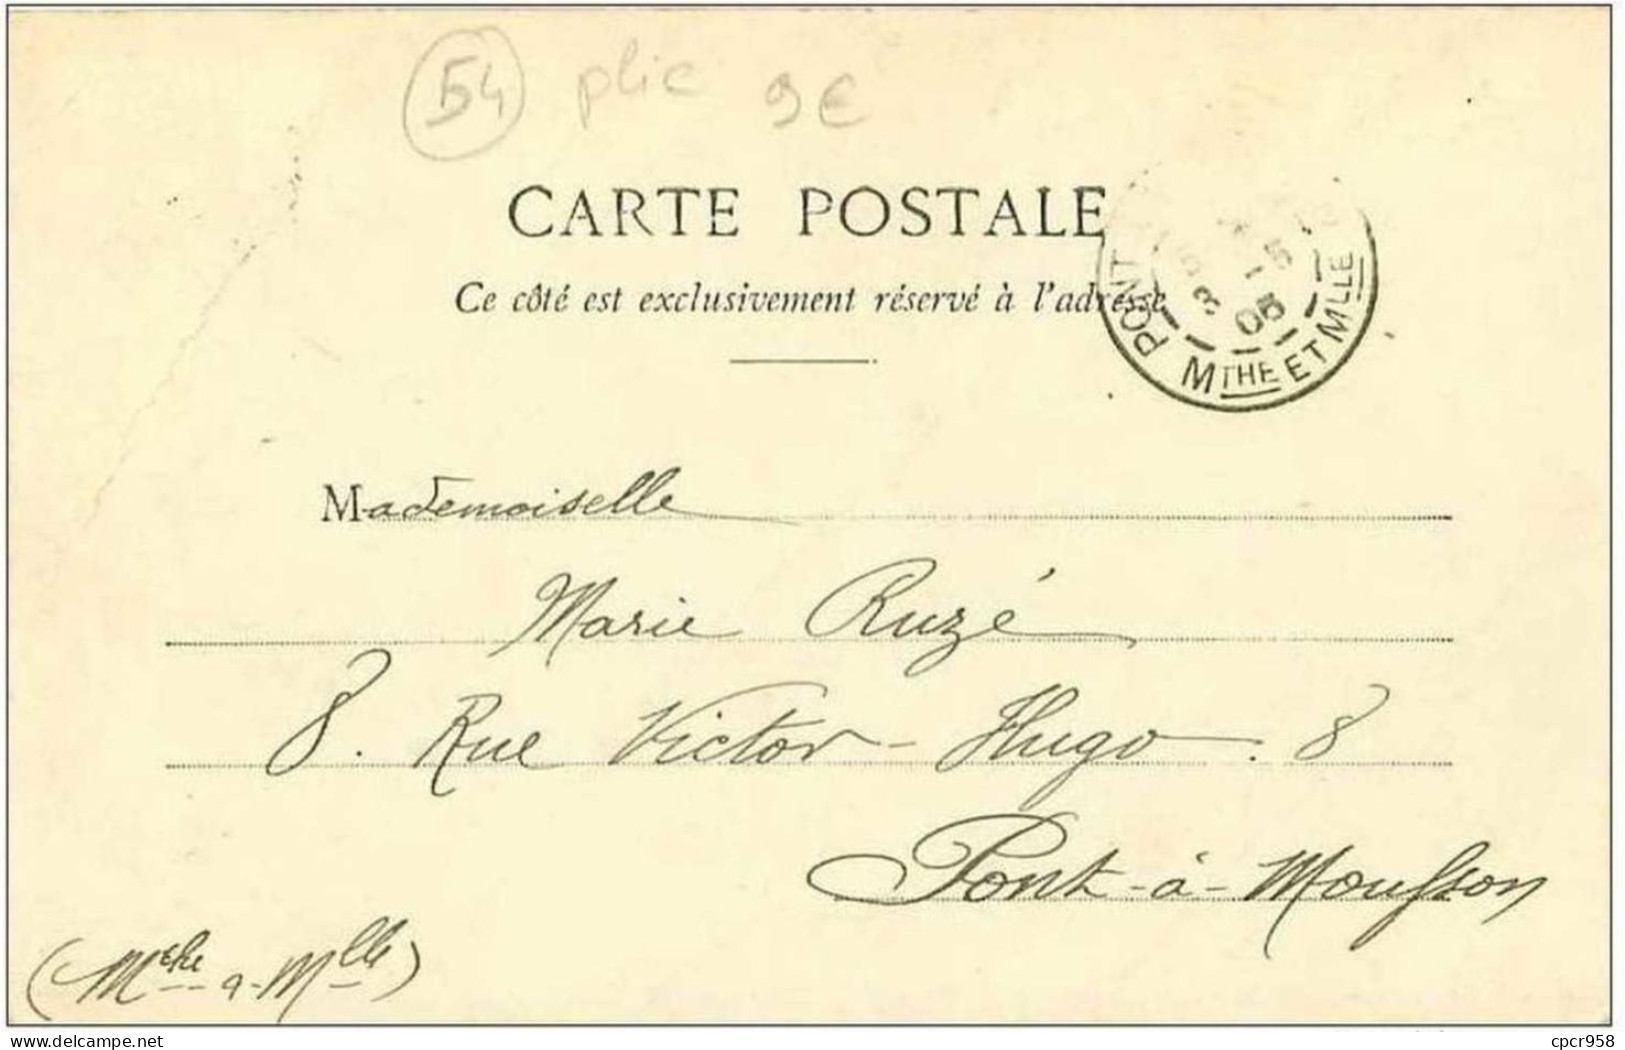 54 plic 9€
CARTE POSTALE
Ce côté est exclusivement réservé à l'adresse
PONT
MTHE ET MLLE
05
Mademoiselle
Marie Ruzé
8. Rue Victor-Hugo. 8
Pont-à-Mousson
(Mthe-a-Mlle)
cpcr958